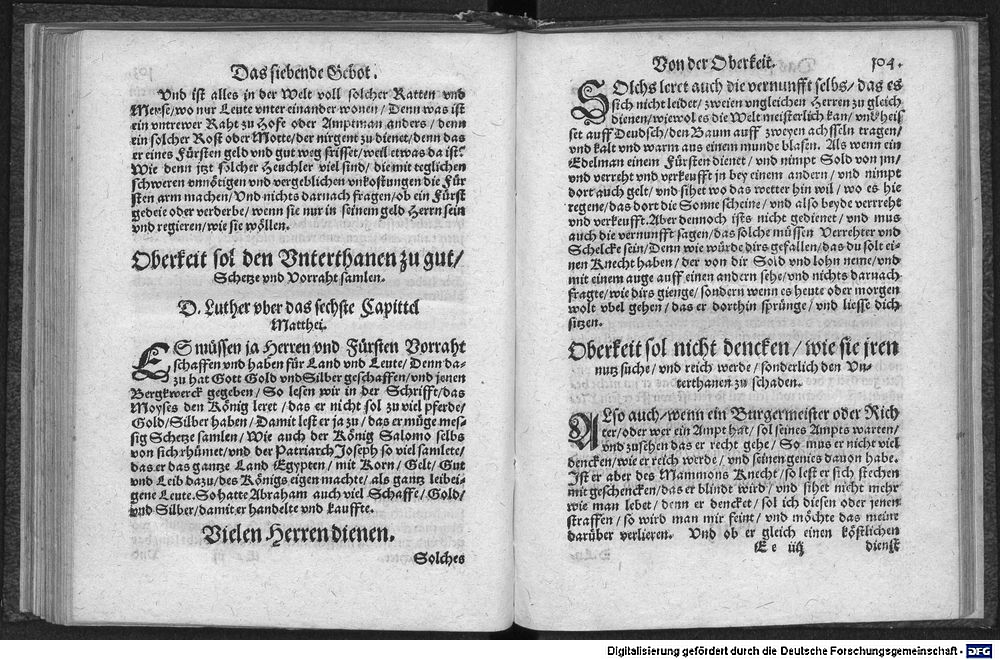 Das siebende Gebot.
Vnd ist alles in der Welt voll solcher Ratten vnd
Meyse/wo nur Leute vnter einander wonen/Denn was ist
ein vntrewer Raht zu Hofe oder Amptman anders/denn
ein solcher Rost oder Motte/der nirgent zu dienet/denn das
er eines Fürsten geld vnd gut weg frisset/weil etwas da ist?
Wie denn jtzt solcher Heuchler viel sind/die mit teglichen
schweren vnnötigen vnd vergeblichen vnkostungen die Für
sten arm machen/Vnd nichts darnach fragen/ob ein Fürst
gedeie oder verderbe/wenn sie nur in seinem geld Herrn sein
vnd regieren/wie sie wöllen.
Oberkeit sol den Vnterthanen zu gut/
Schetze vnd Vorraht samlen.
D. Luther vber das sechste Capittel
Matthei.
ES müssen ja Herren vnd Fürsten Vorraht
schaffen vnd haben für Land vnd Leute/Denn da-
zu hat Gott Gold vnd Silber geschaffen/vnd jenen
Bergkwerck gegeben/So lesen wir in der Schrifft/das
Moyses den König leret/das er nicht sol zu viel pferde/
Gold/Silber haben/Damit lest er ja zu/das er müge mes-
sig Schetze samlen/Wie auch der König Salomo selbs
von sich rhümet/vnd der Patriarch Joseph so viel samlete/
das er das gantze Land Egypten/mit Korn/Gelt/Gut
vnd Leib dazu/des Königs eigen machte/als gantz leibei-
gene Leute. So hatte Abraham auch viel Schaffe/Gold/
vnd Silber/damit er handelte vnd kauffte.
Vielen Herren dienen.
Solches
Von der Oberkeit. 104.
SOlchs leret auch die vernunfft selbs/das es
sich nicht leidet/zweien vngleichen Herren zu gleich
dienen/wiewol es die Welt meisterlich kan/vnd heis
set auff Deudsch/den Baum auff zweyen achsseln tragen/
vnd kalt vnd warm aus einem munde blasen. Als wenn ein
Edelman einem Fürsten dienet/vnd nimpt Sold von jm/
vnd verreht vnd verkeufft jn bey einem andern/vnd nimpt
dort auch gelt/vnd sihet wo das wetter hin wil/wo es hie
regene/das dort die Sonne scheine/vnd also beyde verreht
vnd verkeufft. Aber dennoch ists nicht gedienet/vnd mus
auch die vernunfft sagen/das solche müssen Verrehter vnd
Schelcke sein/Denn wie würde dirs gefallen/das du solt ei-
nen Knecht haben/der von dir Sold vnd lohn neme/vnd
mit einem auge auff einen andern sehe/vnd nichts darnach
fragte/wie dirs gienge/sondern wenn es heute oder morgen
wolt vbel gehen/das er dorthin sprünge/vnd liesse dich
sitzen.
Oberkeit sol nicht dencken/wie sie jren
nutz suche/vnd reich werde/sonderlich den Vn-
terthanen zu schaden.
ALso auch/wenn ein Burgermeister oder Rich
ter/oder wer ein Ampt hat/sol seines Ampts warten/
vnd zusehen das er recht gehe/So mus er nicht viel
dencken/wie er reich werde/vnd seinen genies dauon habe.
Ist er aber des Mammons Knecht/so lest er sich stechen
mit geschencken/das er blind wird/vnd sihet nicht mehr
wie man lebet/denn er dencket/sol ich diesen oder jenen
straffen/so wird man mir feint/vnd möchte das meine
darüber verlieren. Vnd ob er gleich einen köstlichen
Ee iiij dienst
Digitalisierung gefördert durch die Deutsche Forschungsgemeinschaft - DFG